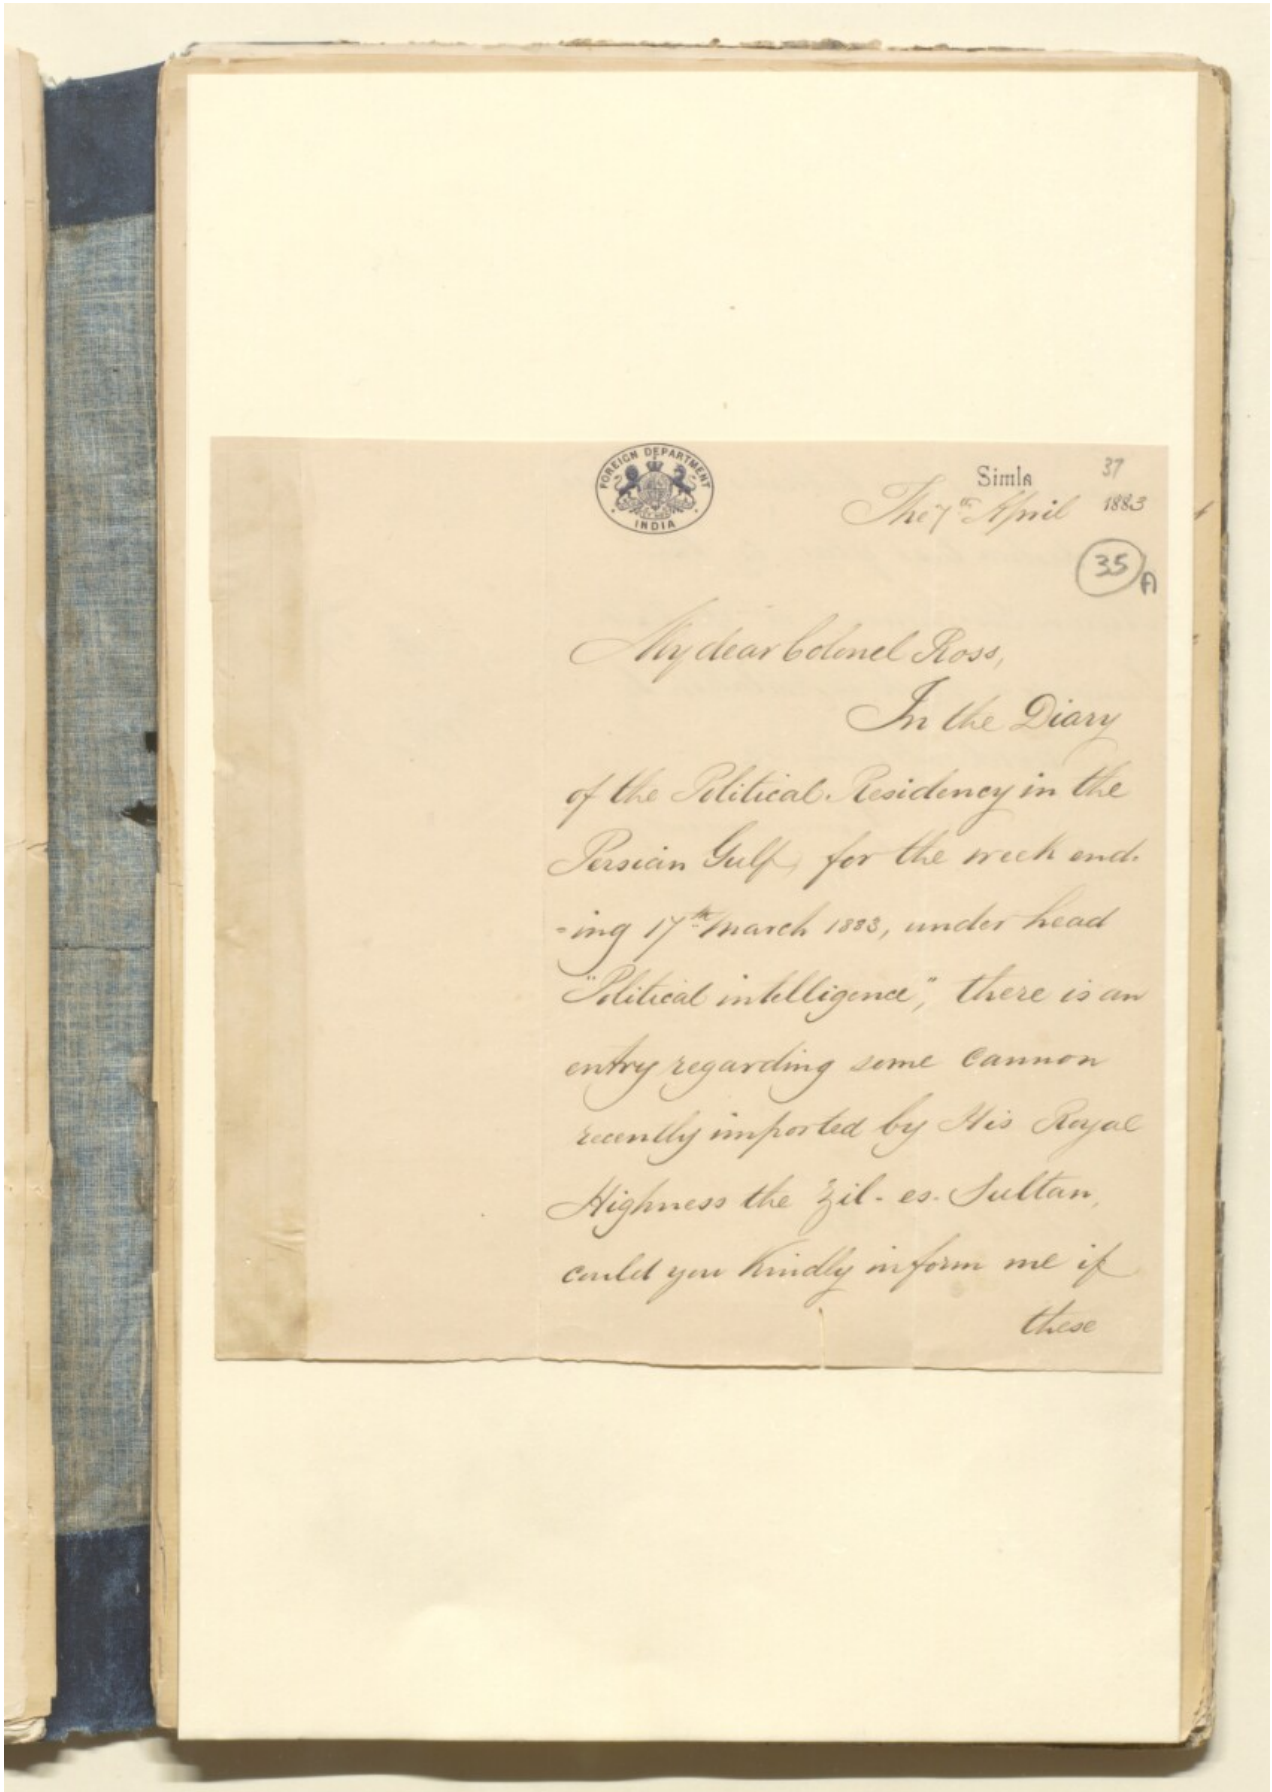 FOREIGN DEPARTMENT
INDIA
Simla
37
The 7th April 1883
35
A
My dear Colonel Ross,
In the Diary
of the Political Residency in the
Persian Gulf, for the week end-
-ing 17th March 1883, under head
"Political intelligence", there is an
entry regarding some cannon
recently imported by His Royal
Highness the Zil-es-Sultan,
could you kindly inform me if
these